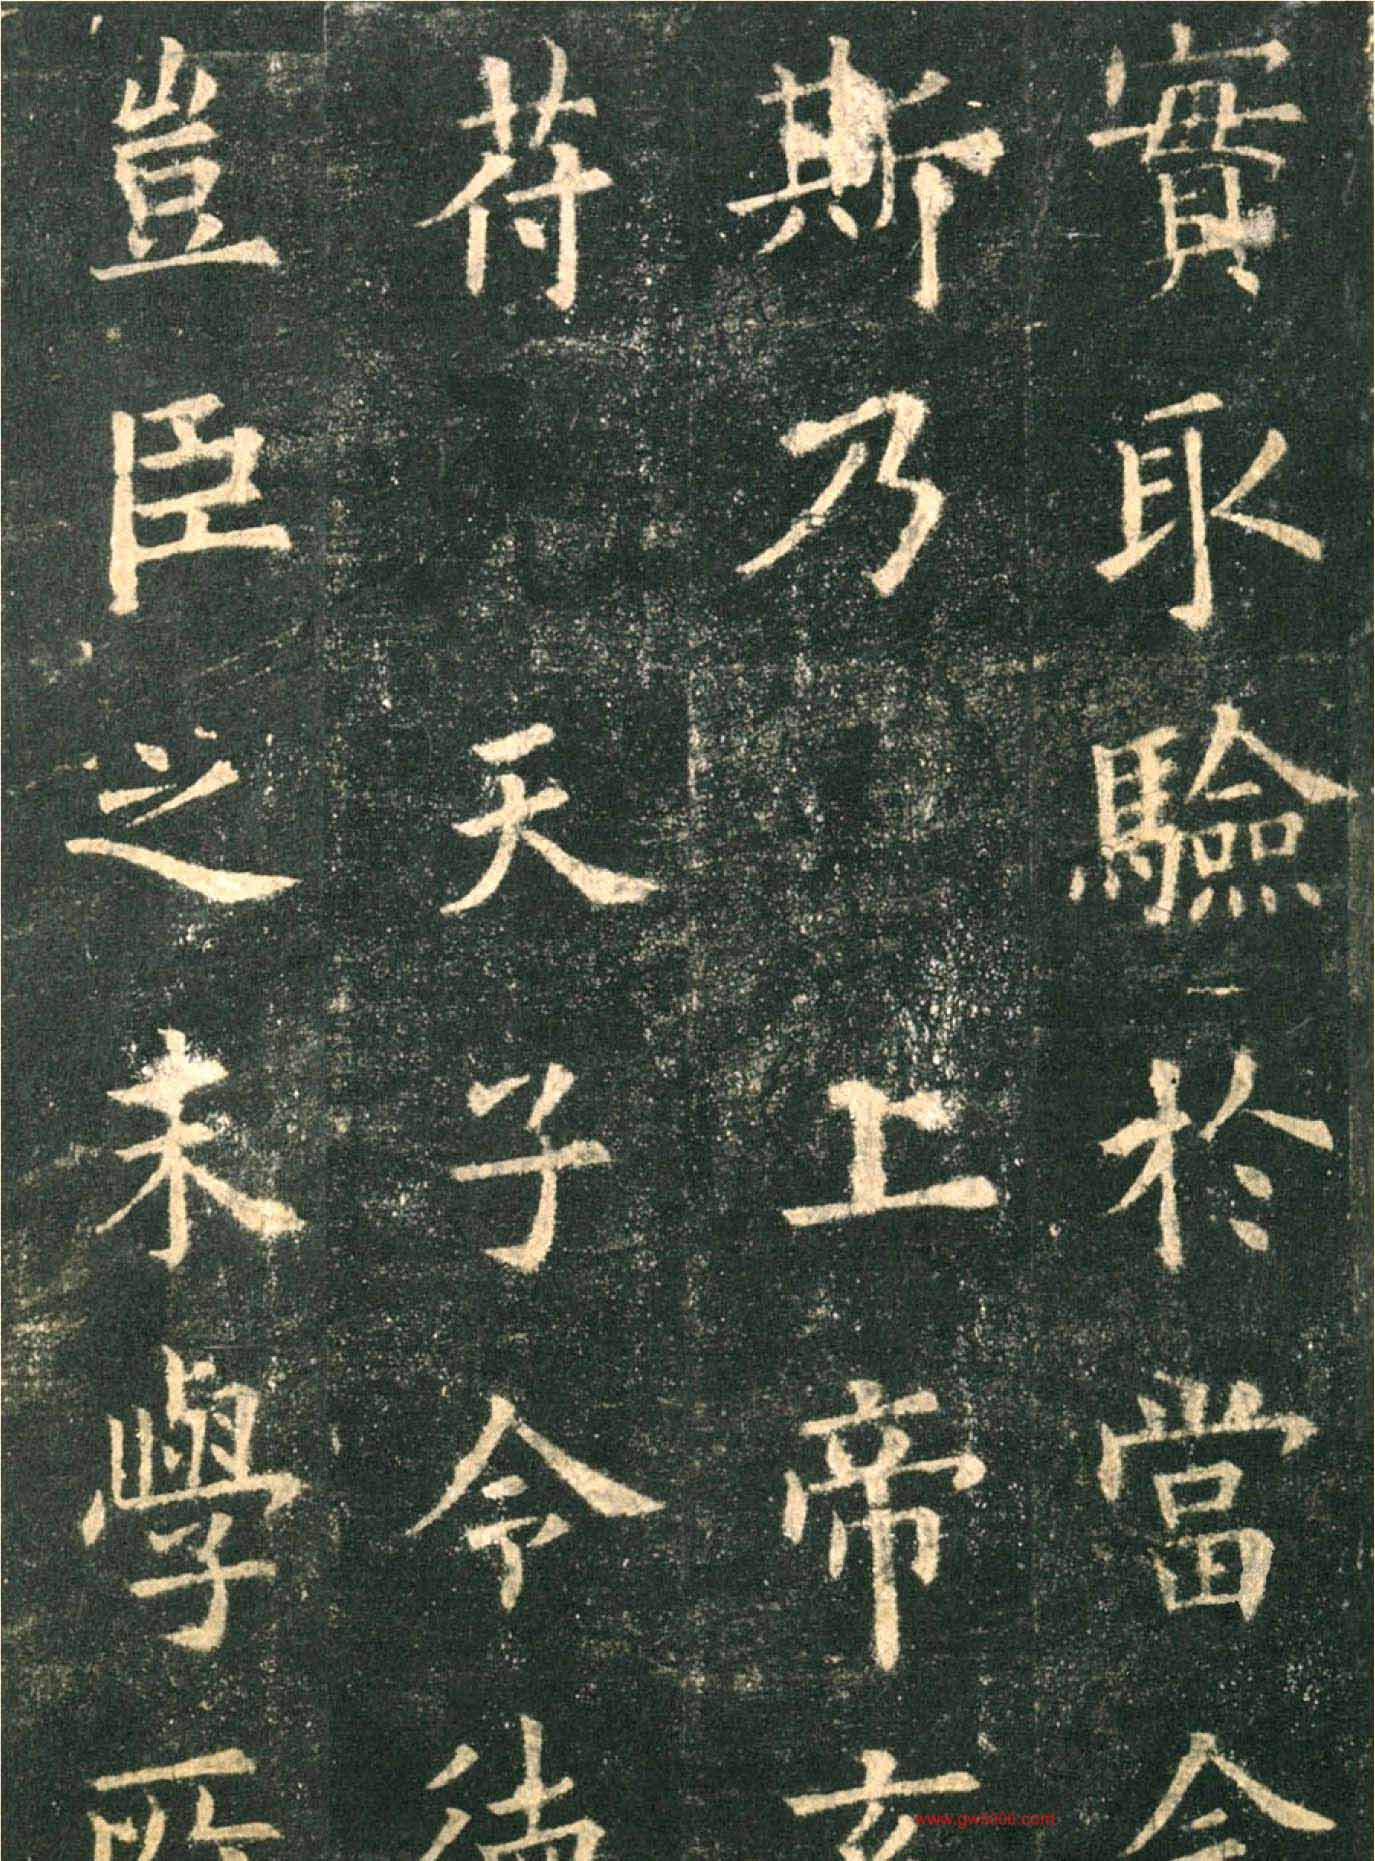 實取驗於當今
斯乃上帝玄
荷天子令德
豈臣之末學所
www.gw5000.com